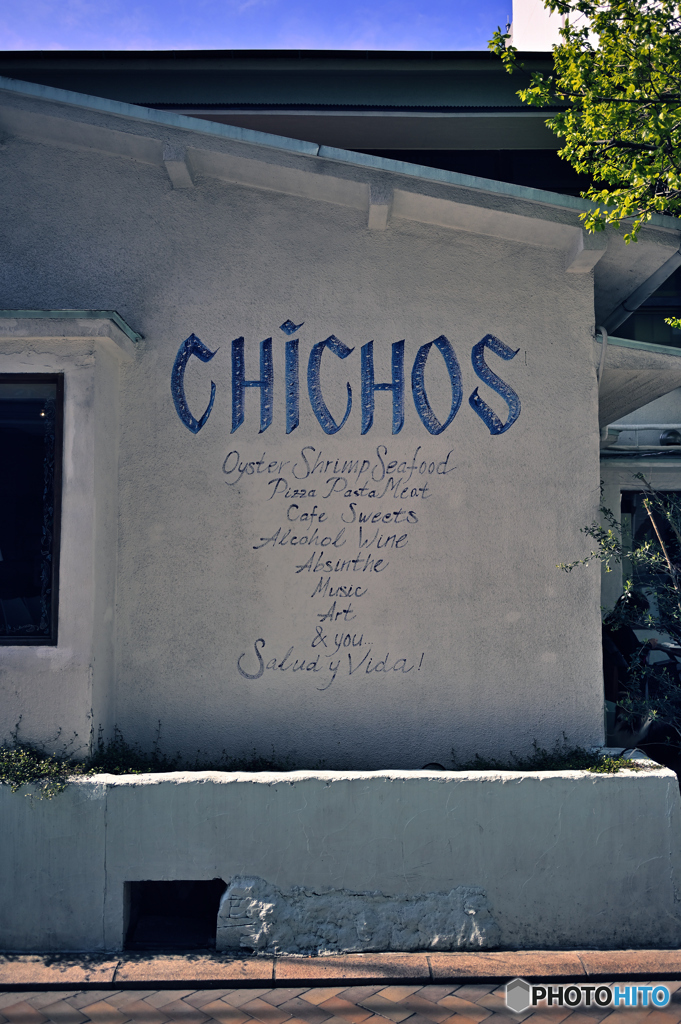 CHiCHOS
Oyster Shrimp Seafood
Pizza Pasta Meat
Cafe Sweets
Alcohol Wine
Absinthe
Music
Art
& you...
Salud y Vida!
PHOTOHITO